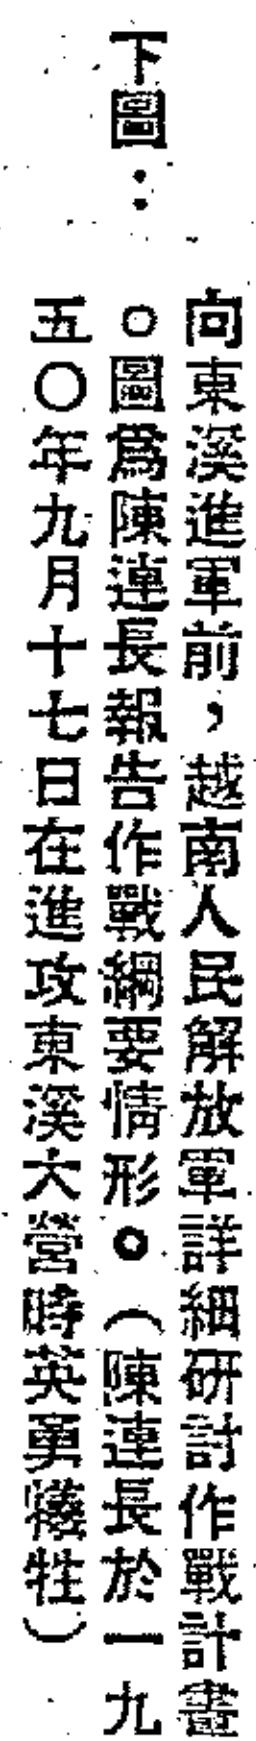 下圖：
向東溪進軍前，越南人民解放軍詳細研討作戰計畫
。圖爲陳連長報告作戰綱要情形。（陳連長於一九
五〇年九月十七日在進攻東溪大營時英勇犧牲）